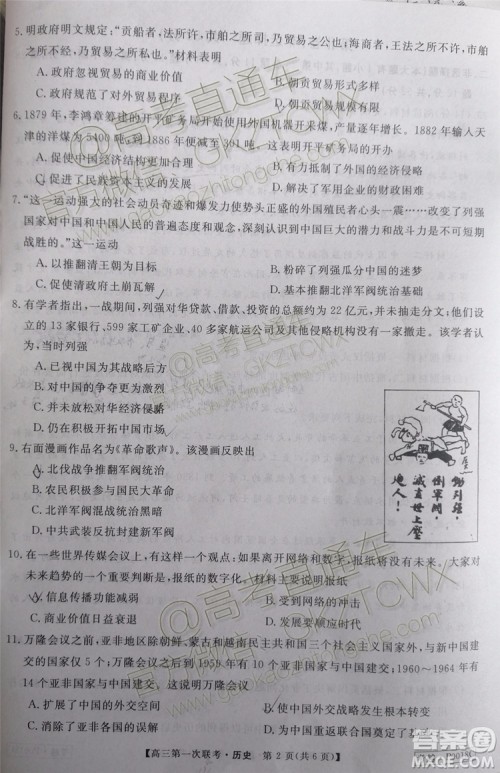 5. 明政府明文规定：“贡船者，法所许，市舶之所司，乃贸易之公也；海商者，王法之所不许，市舶
之所不经，乃贸易之私也。”材料表明
A. 政府忽视贸易的商业价值 B. 朝贡贸易形式多样
C. 政府规范了对外贸易程序 D. 朝贡贸易规模有限
6. 1879年，李鸿章筹建的开平矿务局开始使用外国机器开采煤，产量逐年增长。1882年输入天
津的洋煤为5400吨，到1886年便减至301吨，这表明开平矿务局的开办
A. 使中国经济结构更加合理 B. 有力抵制了外国经济侵略
C. 促进了民族资本主义的发展 D. 解决了军用企业的财政困难
7. “这一运动强大的社会动员奇迹和爆发力使势头正盛的外国殖民者心头一震……改变了列强
国家对中国和中国人民的普遍观念和态度，深刻认识到中国巨大的潜力和战斗力是不可短期
战胜的。”这一运动
A. 以推翻清王朝为目标 B. 粉碎了列强瓜分中国的迷梦
C. 促使清政府土崩瓦解 D. 基本推翻北洋军阀统治基础
8. 有学者指出，一战期间，列强对华贷款、借款、投资的总额约为22亿元，并未抽走分文；他们开设
立的13家银行，599家工矿企业，40多家航运公司及其他侵略机构没有一家撤走。该学者认
为，当时列强
A. 已视中国为其战略后方
B. 对中国的争夺更为激烈
C. 并未放松对华经济侵略
D. 仍在积极开拓中国市场
9. 右面漫画作品名为《革命歌声》。该漫画反映出
A. 北伐战争推翻军阀统治
B. 农民积极参与国民大革命
C. 北洋军阀混战统治黑暗
D. 中共武装反抗封建新军阀
锄列强，
倒军阀，
灭土豪
地人！
10. 在一些世界传媒会议上，有这样一个观点：如果离开网络和数字，报纸将没有未来。大家对
未来趋势的一个重要判断是，报纸的数字化。材料主要说明报纸
A. 信息传播功能减弱 B. 受到网络的冲击
C. 商业价值日益衰退 D. 出现了发展机遇
11. 万隆会议之前，亚非地区除朝鲜、蒙古和越南民主共和国三个社会主义国家外，与新中国建交
的国家仅5个；万隆会议后到1959年有10个亚非国家与中国建交；1960～1964年有
14个亚非国家与中国建交。这说明万隆会议
A. 扩展了中国的外交空间 B. 奠定了新中国的外交基础
C. 取得了重大的外交突破 D. 导致亚非国家与中国建交
高三第一次联考·历史 第2页(共6页)
@高考直通车
GKZTCWX
gaokaozhitongche.com